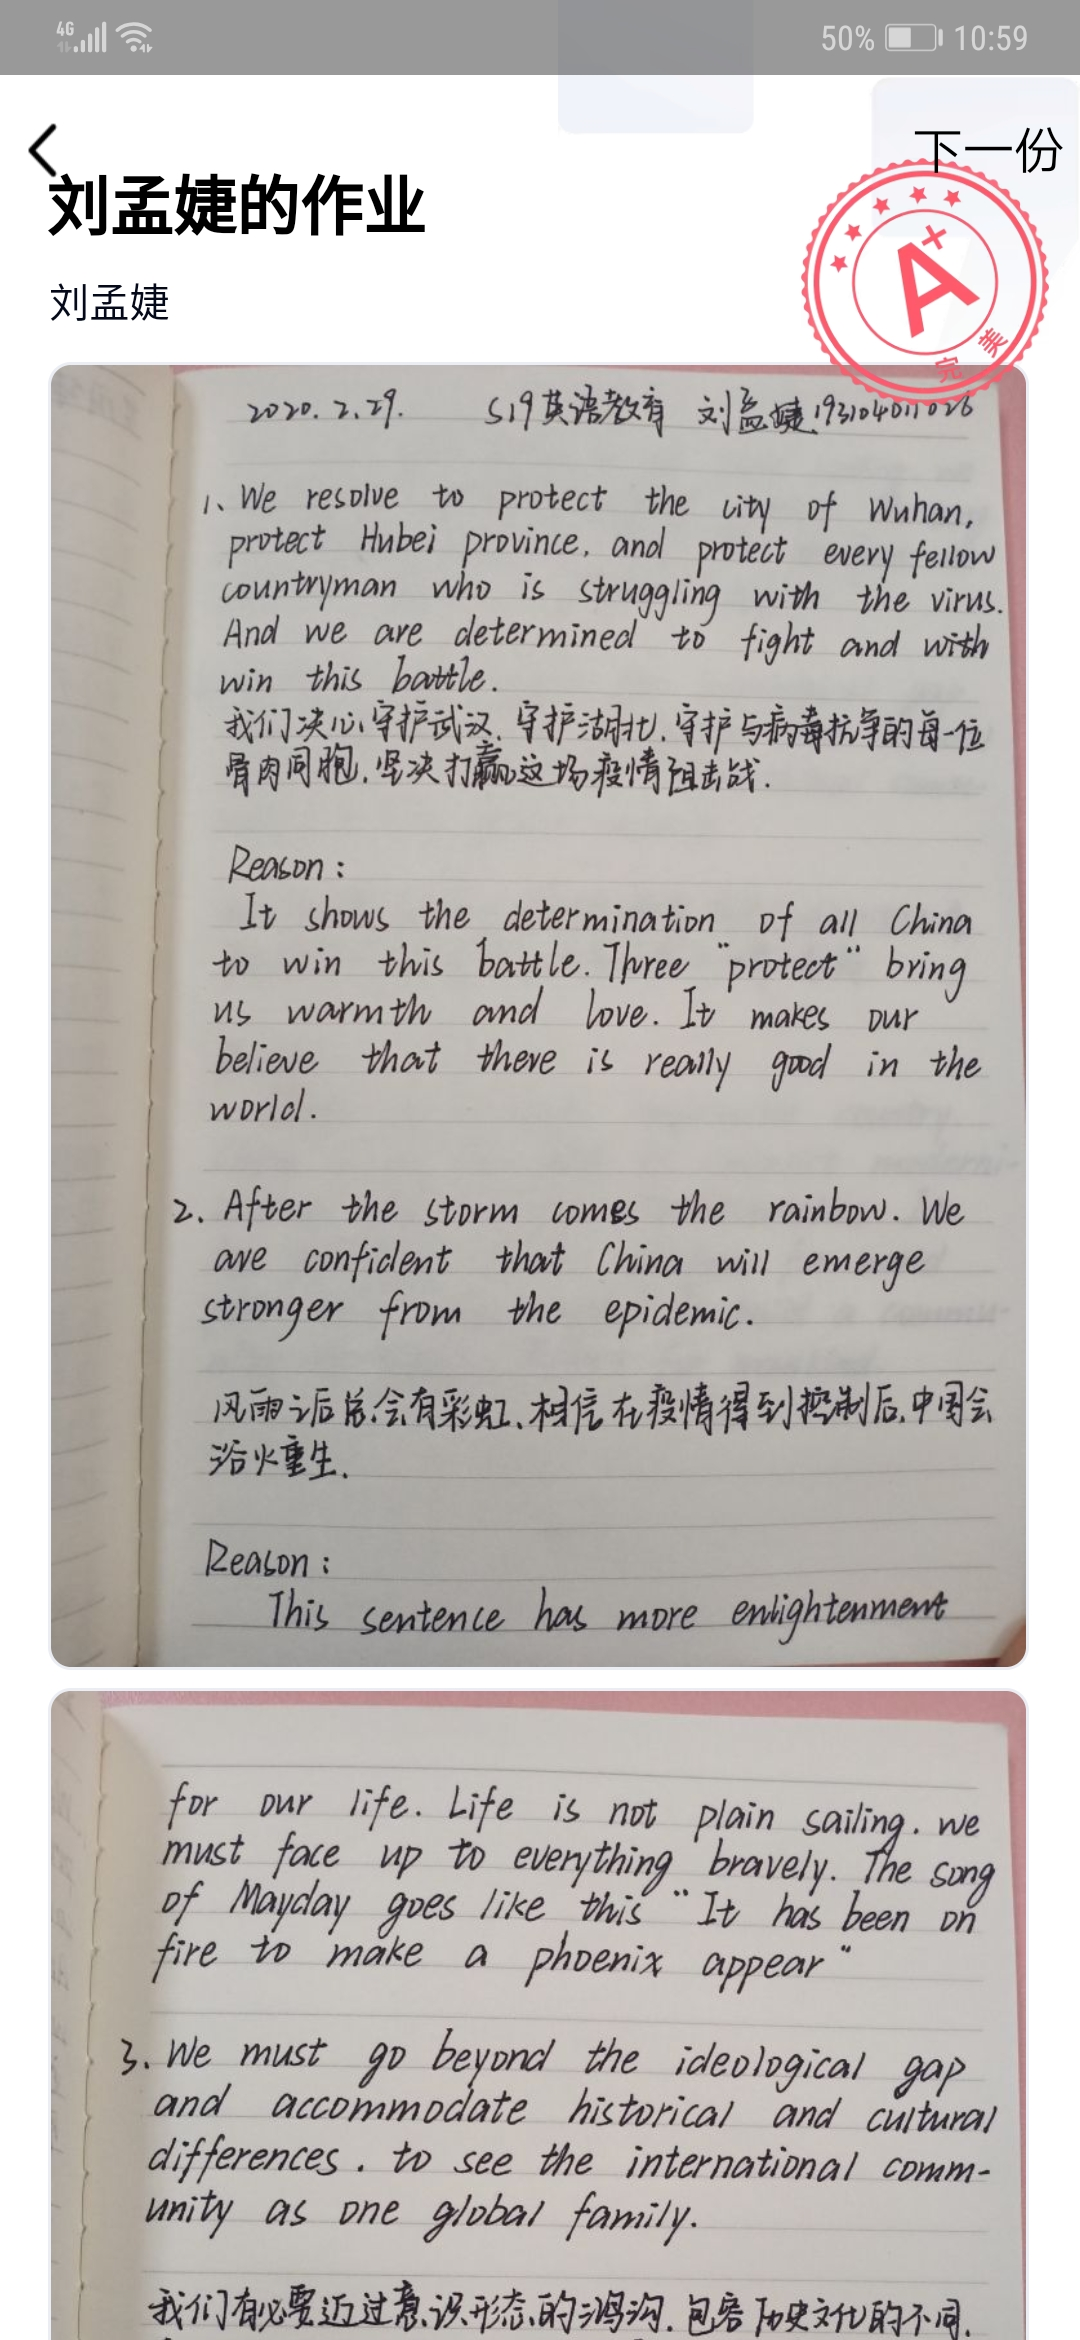 4G
50% 10:59
下一份
刘孟婕的作业
刘孟婕
A+
完美
2020.2.29. S19英语教育 刘孟婕 193104011026
1、We resolve to protect the city of Wuhan,
protect Hubei province, and protect every fellow
countryman who is struggling with the virus.
And we are determined to fight and with
win this battle.
我们决心守护武汉,守护湖北,守护与病毒抗争的每一位
骨肉同胞,坚决打赢这场疫情阻击战.
Reason:
It shows the determination of all China
to win this battle. Three "protect" bring
us warmth and love. It makes our
believe that there is really good in the
world.
2. After the storm comes the rainbow. We
are confident that China will emerge
stronger from the epidemic.
风雨之后总会有彩虹、相信在疫情得到控制后,中国会
浴火重生.
Reason:
This sentence has more enlightenment
for our life. Life is not plain sailing. we
must face up to everything bravely. The song
of Mayday goes like this "It has been on
fire to make a phoenix appear"
3. We must go beyond the ideological gap
and accommodate historical and cultural
differences. to see the international comm-
unity as one global family.
我们有必要迈过意识形态的鸿沟,包容历史文化的不同,